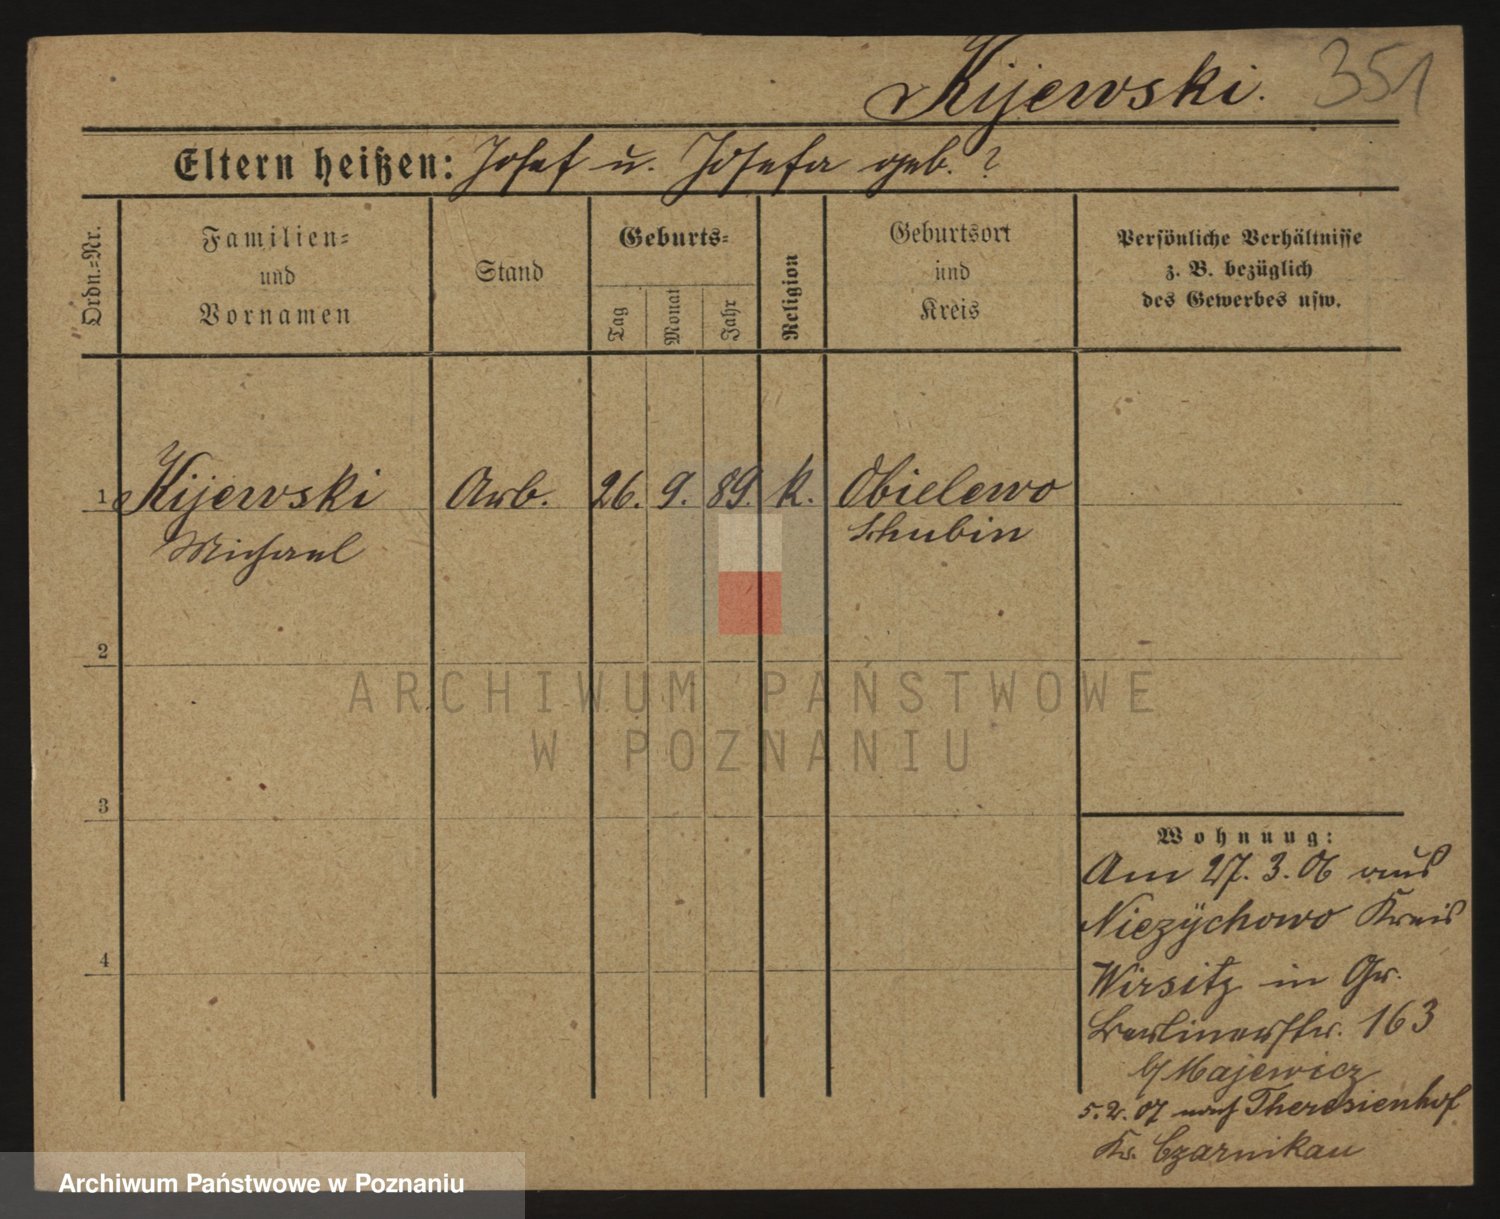 Kijewski. 351
Eltern heißen: Josef u. Josefa geb. ?
Ordn.=Nr.
Familien=
und
Vornamen
Stand
Geburts=
Tag
Monat
Jahr
Religion
Geburtsort
und
Kreis
Persönliche Verhältnisse
z. B. bezüglich
des Gewerbes usw.
1 Kijewski Arb. 26. 9. 89. k. Obielewo
Michael Schubin
2
3
4
Wohnung:
Am 27. 3. 06 aus
Niezychowo Kreis
Wirsitz in Gr.
Berlinerstr. 163
b/ Majewicz
5. 2. 07 nach Theresienhof
Kr. Czarnikau
ARCHIWUM PAŃSTWOWE
W POZNANIU
Archiwum Państwowe w Poznaniu